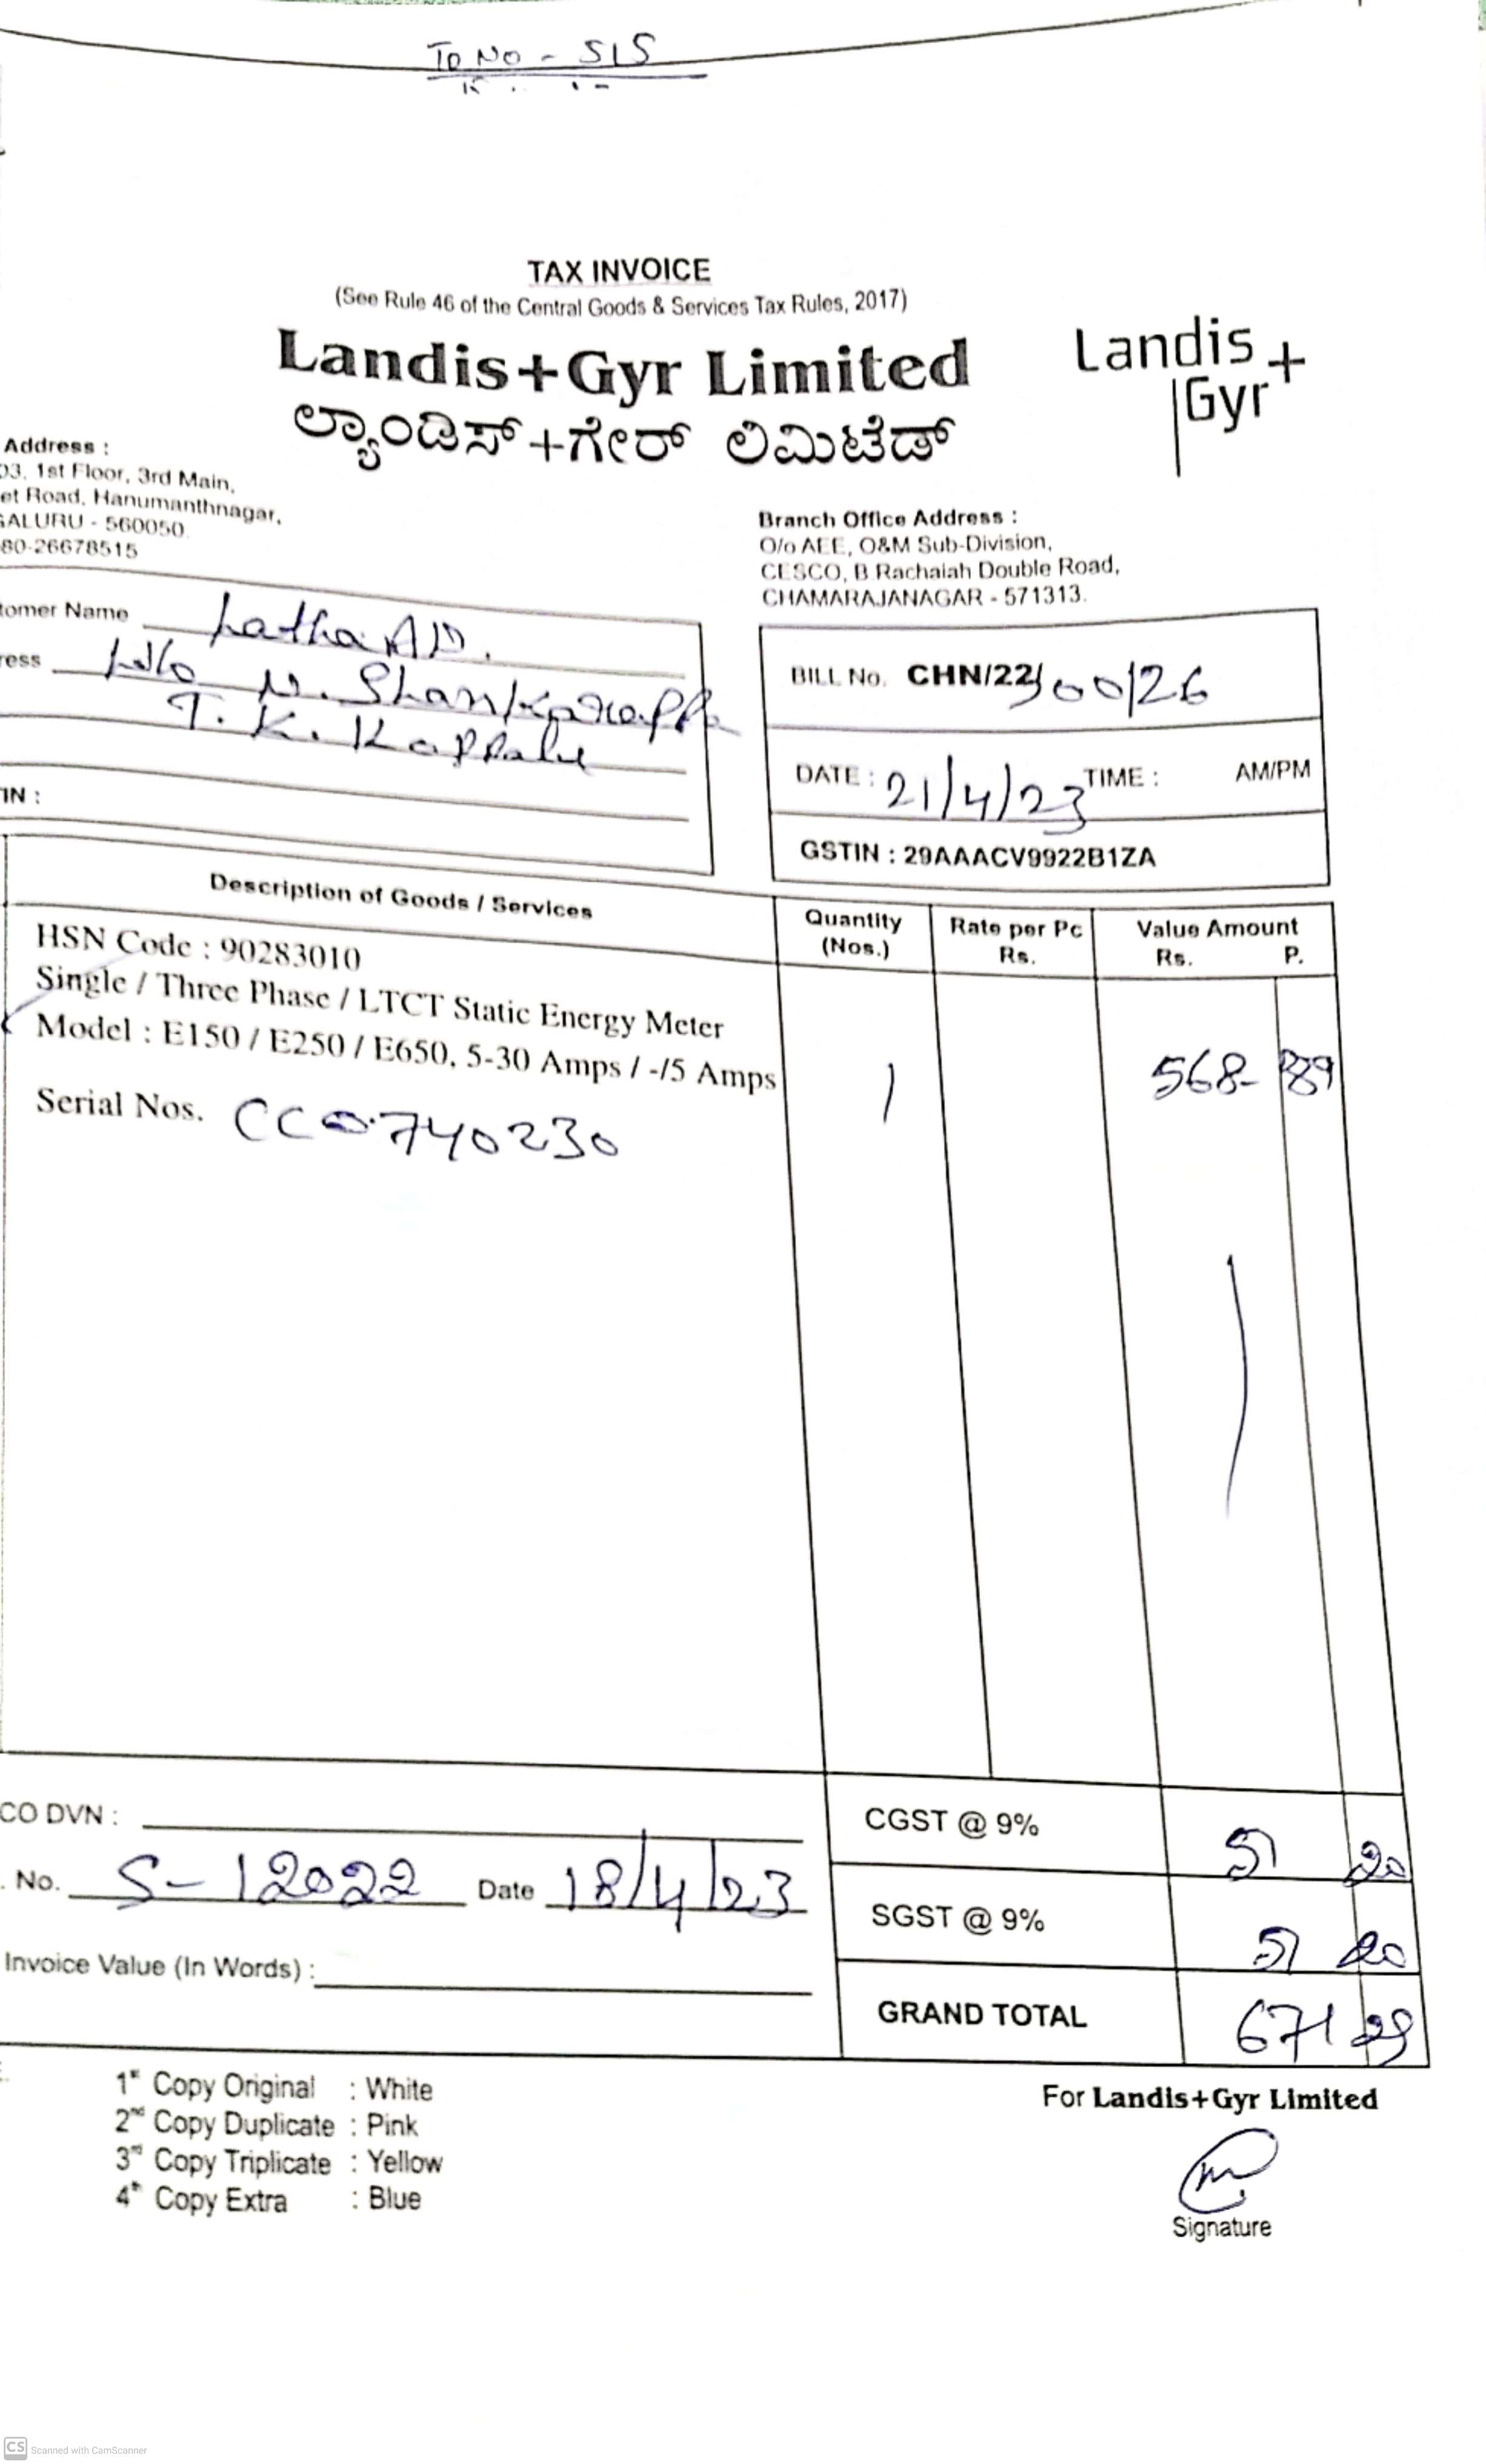 TO NO - 515
TAX INVOICE
(See Rule 46 of the Central Goods & Services Tax Rules, 2017)
Landis+Gyr Limited
Landis+
Gyr
ಲ್ಯಾಂಡಿಸ್+ಗೇರ್ ಲಿಮಿಟೆಡ್
Address :
03, 1st Floor, 3rd Main,
et Road, Hanumanthnagar,
GALURU - 560050.
80-26678515
Branch Office Address :
O/o AEE, O&M Sub-Division,
CESCO, B Rachaiah Double Road,
CHAMARAJANAGAR - 571313.
tomer Name Latha A D.
ress W/o N. Shankarappa
T. K.
IN :
BILL No. CHN/22/300/26
DATE : 21/4/23 TIME : AM/PM
GSTIN : 29AAACV9922B1ZA
Description of Goods / Services Quantity (Nos.) Rate per Pc Rs. Value Amount Rs. P.
HSN Code : 90283010
Single / Three Phase / LTCT Static Energy Meter
Model : E150 / E250 / E650, 5-30 Amps / -/5 Amps 1 568- 89
Serial Nos. CC0740230
CO DVN :
CGST @ 9% 51 20
. No. S-12022 Date 18/4/23
SGST @ 9% 51 20
Invoice Value (In Words) :
GRAND TOTAL 671 29
1st Copy Original : White
2nd Copy Duplicate : Pink
3rd Copy Triplicate : Yellow
4th Copy Extra : Blue
For Landis+Gyr Limited
Signature
CS Scanned with CamScanner